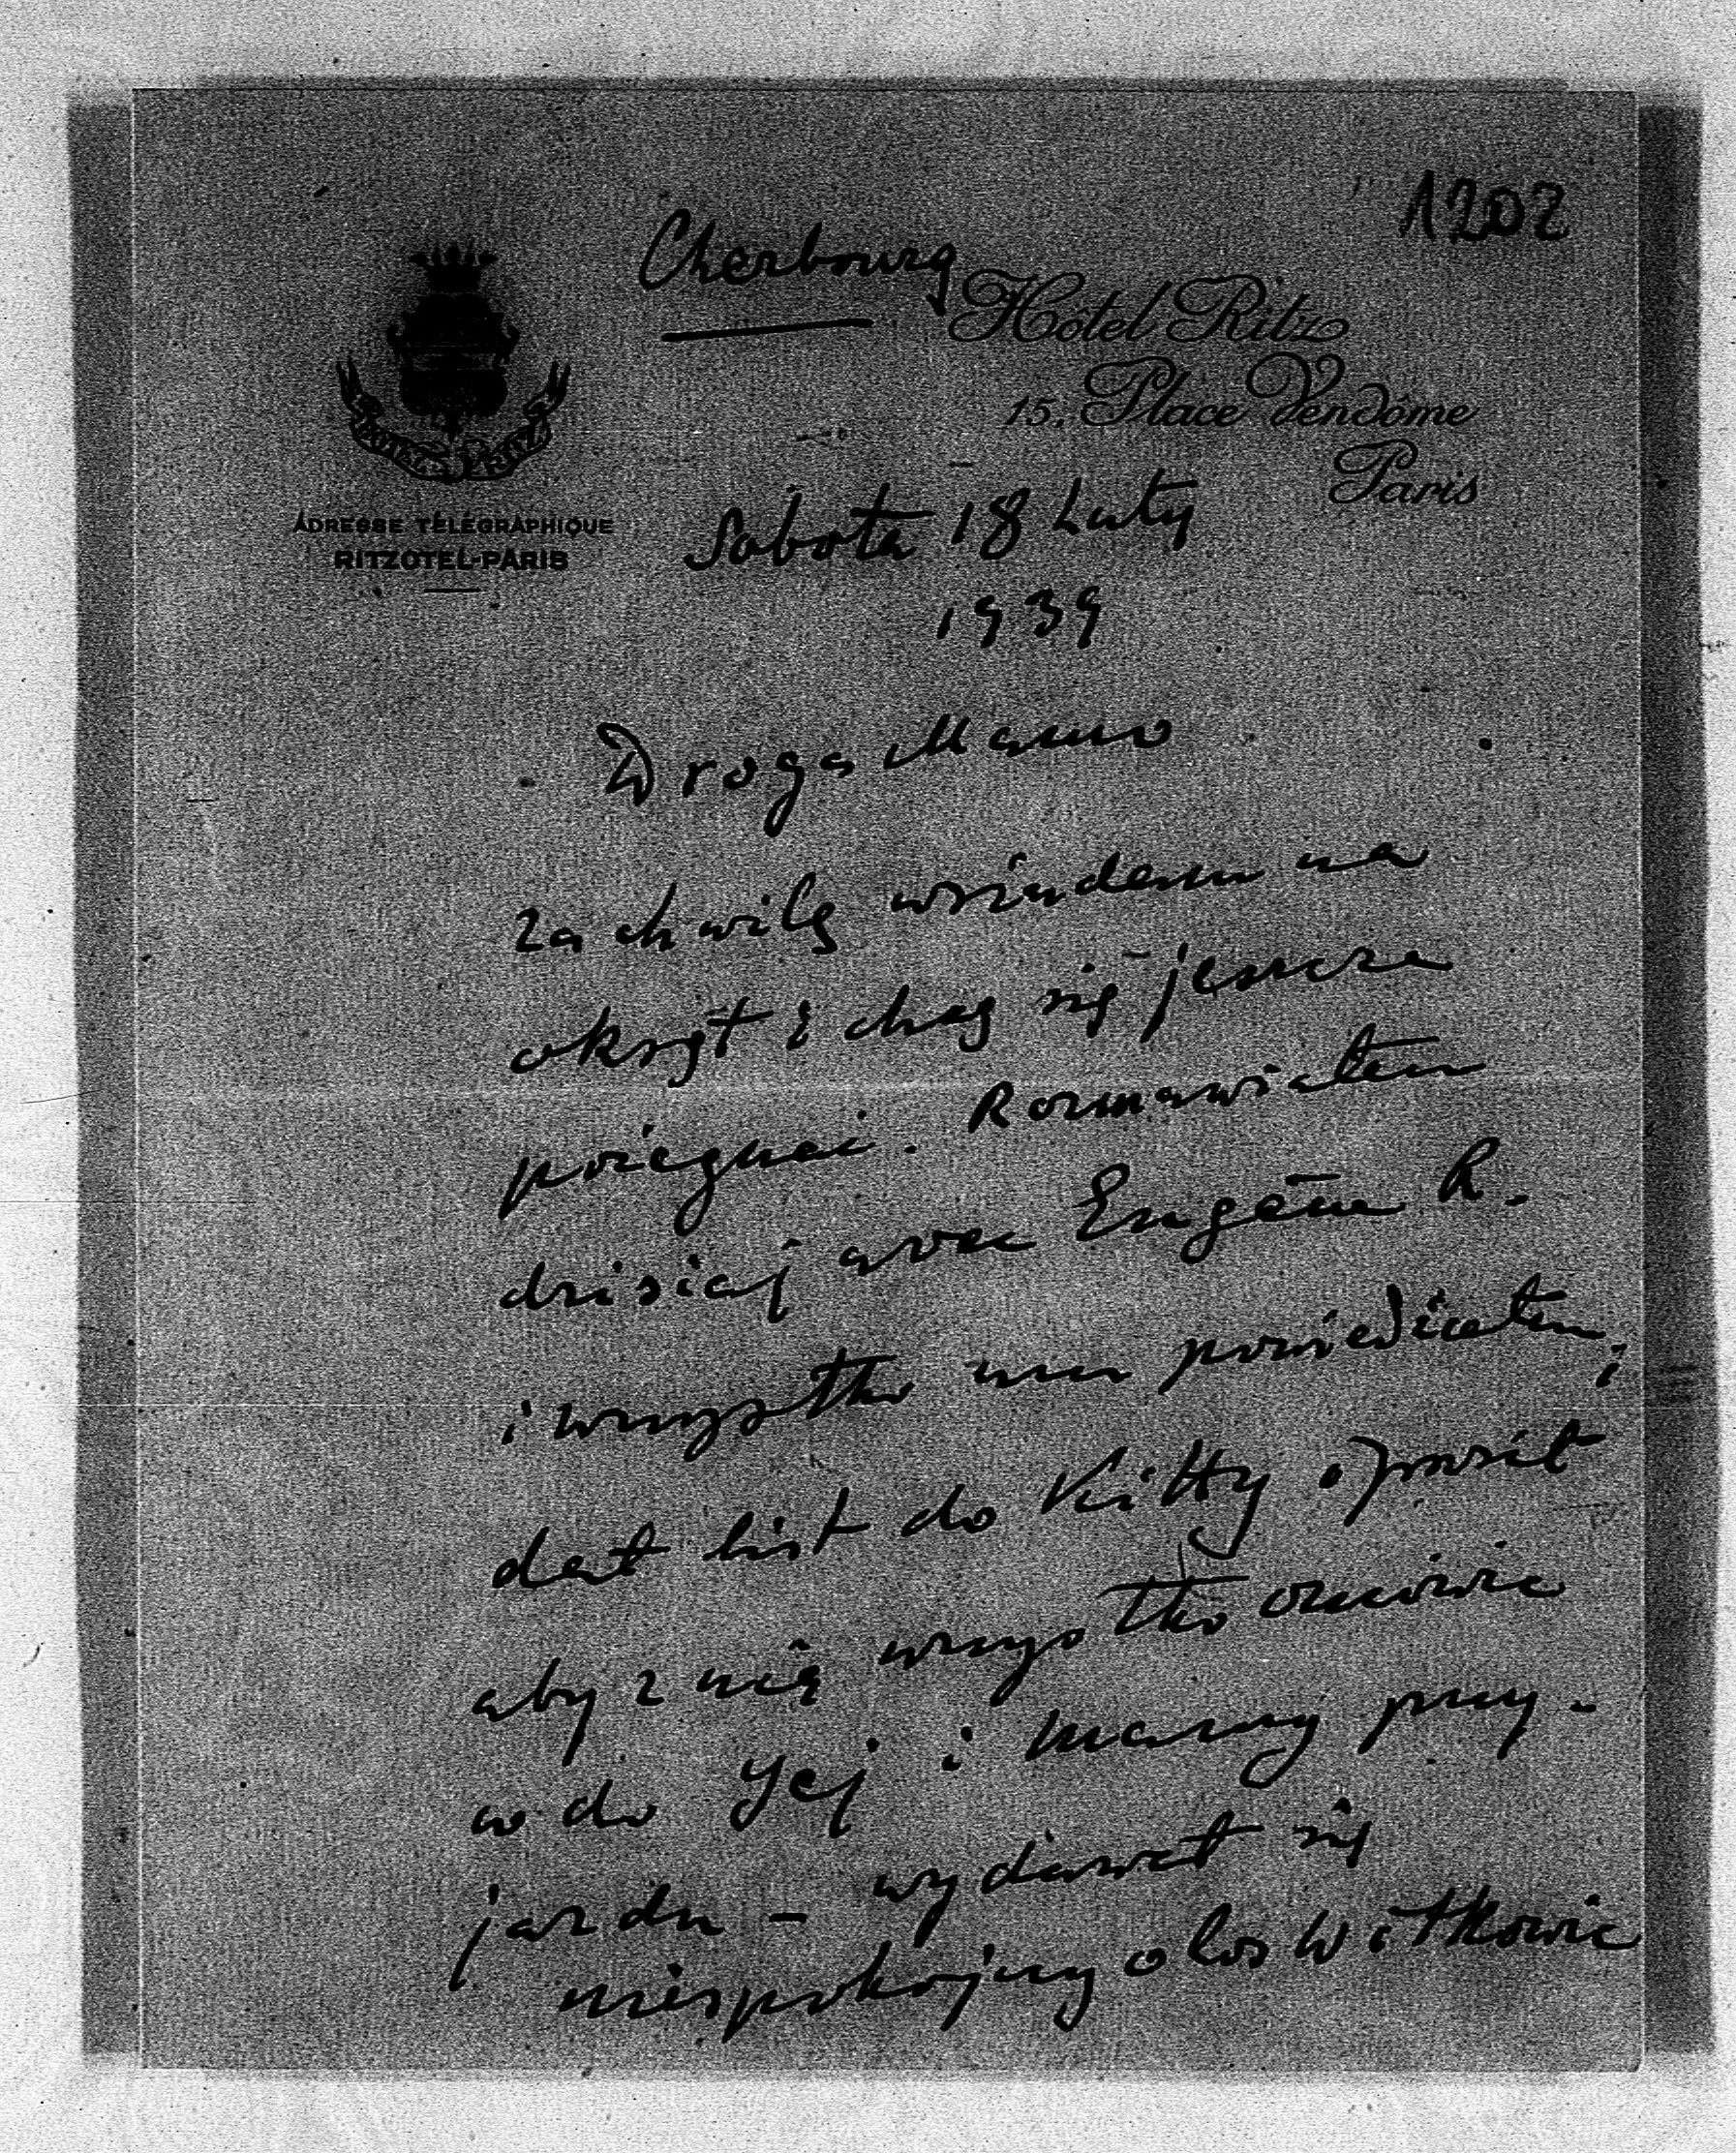 1202
Cherbourg
Hôtel Ritz
15, Place Vendôme
Paris
HOTEL RITZ
ADRESSE TÉLÉGRAPHIQUE
RITZOTEL-PARIS
Sobota 18 Luty
1939
Droga Mamo
Za chwilę wsiadam na
okręt i chcę się jeszcze
pożegnać. Rozmawiałem
dzisiaj avec Eugène R.
i wszystko mu powiedziałem i
dał list do Kitty i prosił
aby z nią wszystko omówić
co do Jej i mamy przy-
jazdu – wydawał się
niespokojny o los Witkowic